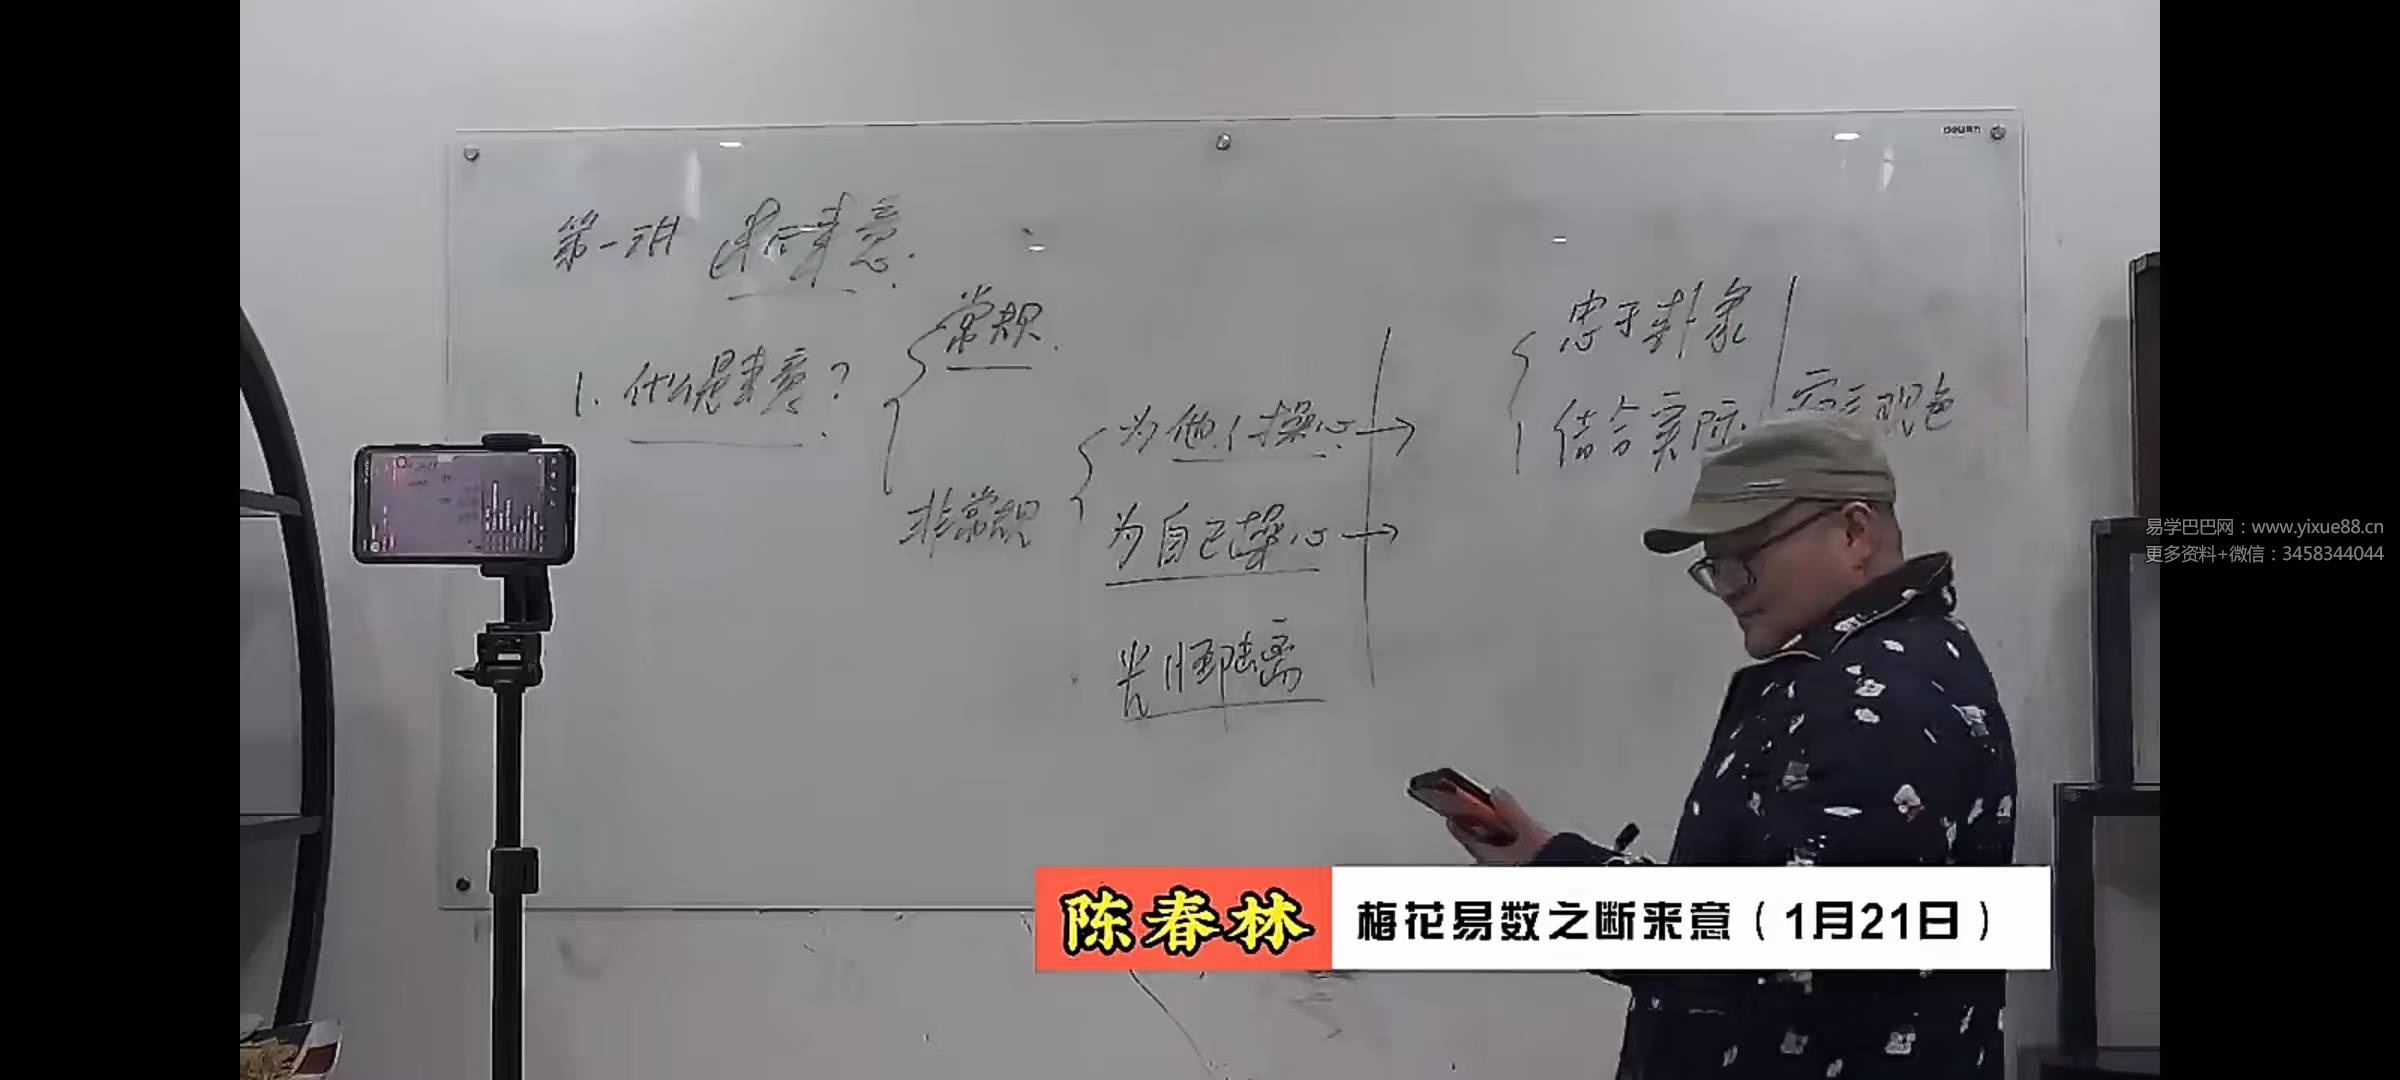 第一讲 来意.
1. 什么是来意?
常规.
非常规
为他人操心
为自己操心
光怪陆离
忠于卦象
结合实际
观色
deli
易学巴巴网：www.yixue88.cn
更多资料+微信：3458344044
陈春林
梅花易数之断来意（1月21日）